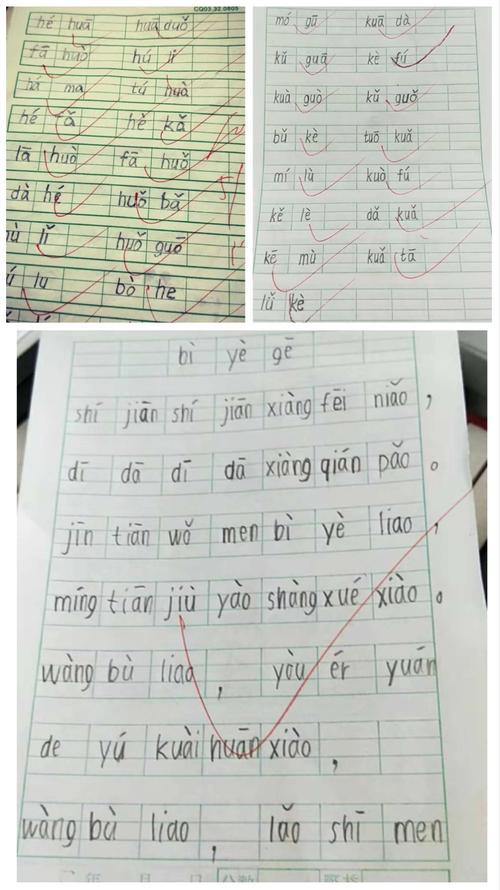 CQ03.32.0805
hé huā huā duǒ
fā huǒ hú li
há ma tú huà
hé fǎ hē kǎ
lā huò fā huǒ
dà hé huǒ bǎ
lǐ huǒ guō
lu bò he
mó gū kuā dà
kǔ guā kè fú
kuà guò kǔ guǒ
bǔ kè tuō kuǎ
mí lù kuò fú
kě lè dǎ kuǎ
kē mù kuǎ tā
lǚ kè
bì yè gē
shí jiān shí jiān xiàng fēi niǎo,
dī dā dī dā xiàng qián pǎo。
jīn tiān wǒ men bì yè liao,
míng tiān jiù yào shàng xué xiào。
wàng bù liao, yòu ér yuán
de yú kuài huān xiào,
wàng bù liao, lǎo shī men